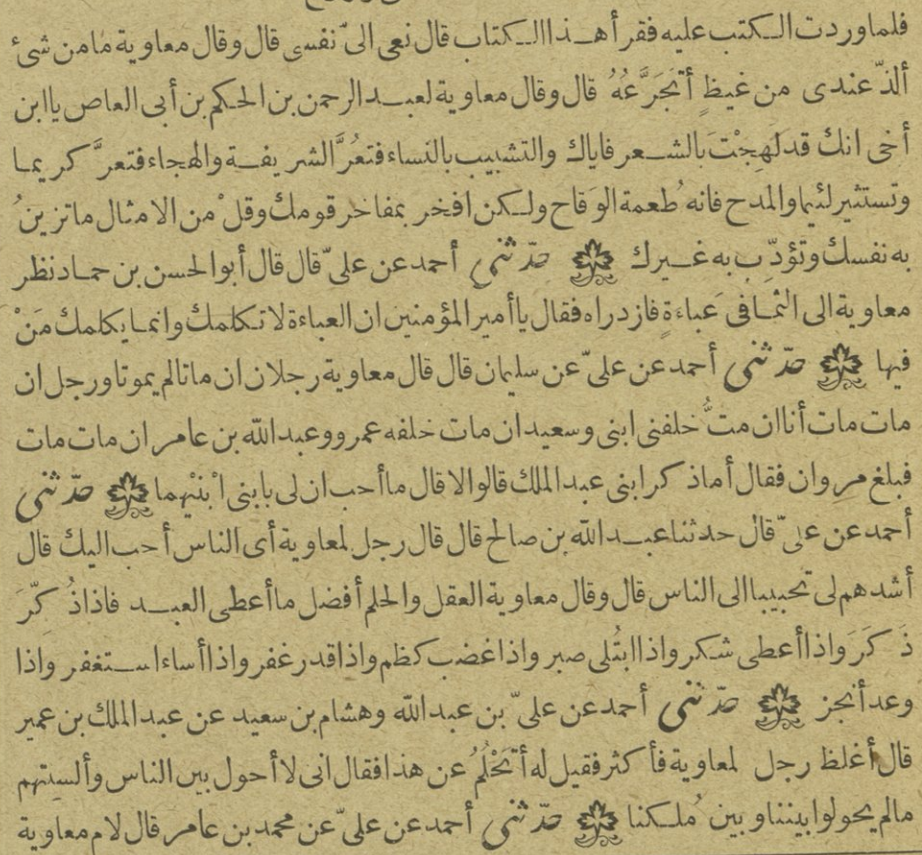 فلما وردت الكتب عليه فقرأ هذا الكتاب قال نعى الىّ نفسى قال وقال معاوية مامن شئ
ألذّ عندى من غيظٍ أتجَرَّعُهُ قال وقال معاوية لعبد الرحمن بن الحكم بن أبى العاص ياابن
أخى انك قد لَهِجْتَ بالشعر فاياك والتشبيب بالنساء فتعُرَّ الشريفة والهجاء فتعرَّ كريما
وتستثير لئيما والمدح فانه طُعمة الوَقاح ولكن افخر بمفاخر قومك وقلْ من الامثال ماتزينُ
به نفسك وتؤدّب به غيرك حدّثنى أحمد عن علىّ قال قال أبو الحسن بن حماد نظر
معاوية الى الثمافى عَباءةٍ فازدراه فقال ياأمير المؤمنين ان العباءة لاتكلمك وانما يكلمك مَنْ
فيها حدّثنى أحمد عن علىّ عن سليمان قال قال معاوية رجلان ان ماتالم يموتا ورجل ان
مات مات أنا ان متُّ خلفنى ابنى وسعيد ان مات خلفه عمرو وعبد الله بن عامر ان مات مات
فبلغ مروان فقال أماذكر ابنى عبد الملك قالوا لا قال ماأحب ان لى بابنى ابْنَيْهما حدّثنى
أحمد عن علىّ قال حدثنا عبد الله بن صالح قال قال رجل لمعاوية أى الناس أحب اليك قال
أشدهم لى تحبيبا الى الناس قال وقال معاوية العقل والحلم أفضل ماأعطى العبد فاذا ذُكّرَ
ذَكَرَ واذا أعطى شكر واذا ابتُلى صبر واذا غضب كظم واذا قدر غفر واذا أساء استغفر واذا
وعد أنجز حدّثنى أحمد عن علىّ بن عبد الله وهشام بن سعيد عن عبد الملك بن عمير
قال أغلظ رجل لمعاوية فأكثر فقيل له أتحْلُمُ عن هذا فقال انى لا أحول بين الناس وألسنتهم
مالم يحولوا بيننا وبين مُلكنا حدّثنى أحمد عن علىّ عن محمد بن عامر قال لام معاوية